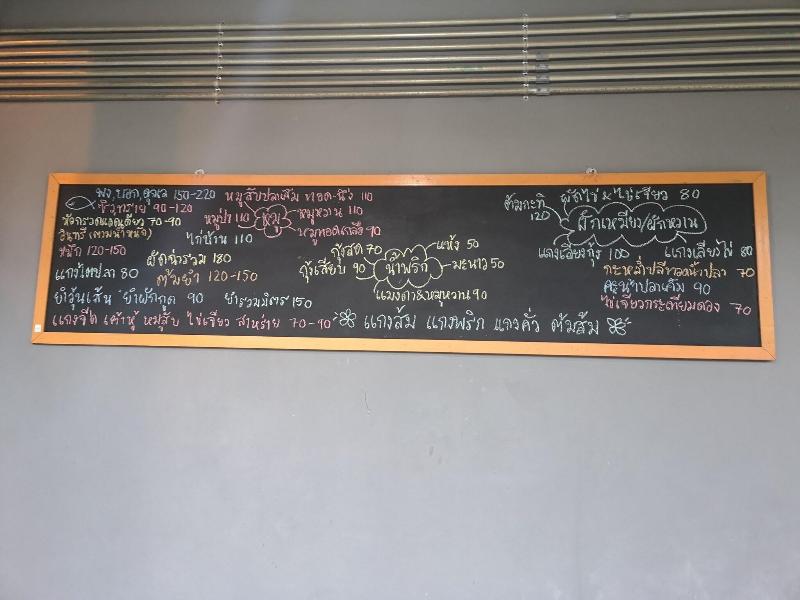 150-220
ซิวทราย 90-120
หัวกรวดแดดเดียว 70-90
อินทรี (ตามน้ำหนัก)
หมึก 120-150
แกงไตปลา 80
ยำวุ้นเส้น ยำผักกูด 90 ยำรวมมิตร 150
แกงจืด เต้าหู้ หมูสับ ไข่เจียว สาหร่าย 70-90
ไก่บ้าน 110
ผัดฉ่ารวม 180
ต้มยำ 120-150
หมูสับปลาเค็ม ทอด-นึ่ง 110
หมูป่า 110
หมู
หมูหวาน 110
หมูทอดเกลือ 90
น้ำพริก
กุ้งสด 70
แห้ง 50
กุ้งเสียบ 90
มะนาว 50
แมงดา&หมูหวาน 90
แกงส้ม แกงพริก แกงคั่ว ต้มส้ม
ผักเหมียง/ผักหวาน
ต้มกะทิ 120
ผัดไข่ & ไข่เจียว 80
แกงเลียงกุ้ง 100
แกงเลียงไข่ 80
กะหล่ำปลีทอดน้ำปลา 70
คะน้าปลาเค็ม 90
ไข่เจียวกระเทียมดอง 70